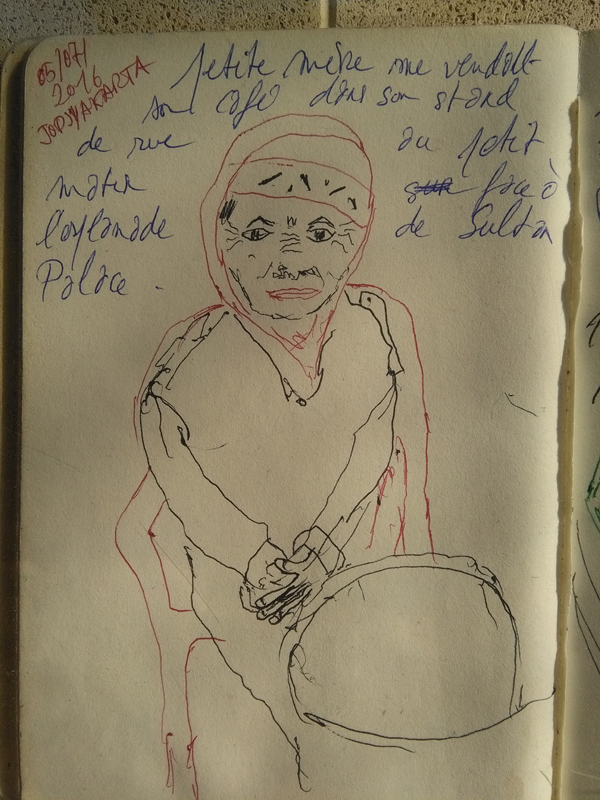 05/07/
2016
JODJYAKARTA
petite mère me vendait
son café dans son stand
de rue au petit
matin face à
l'esplanade de Sultan
Palace.